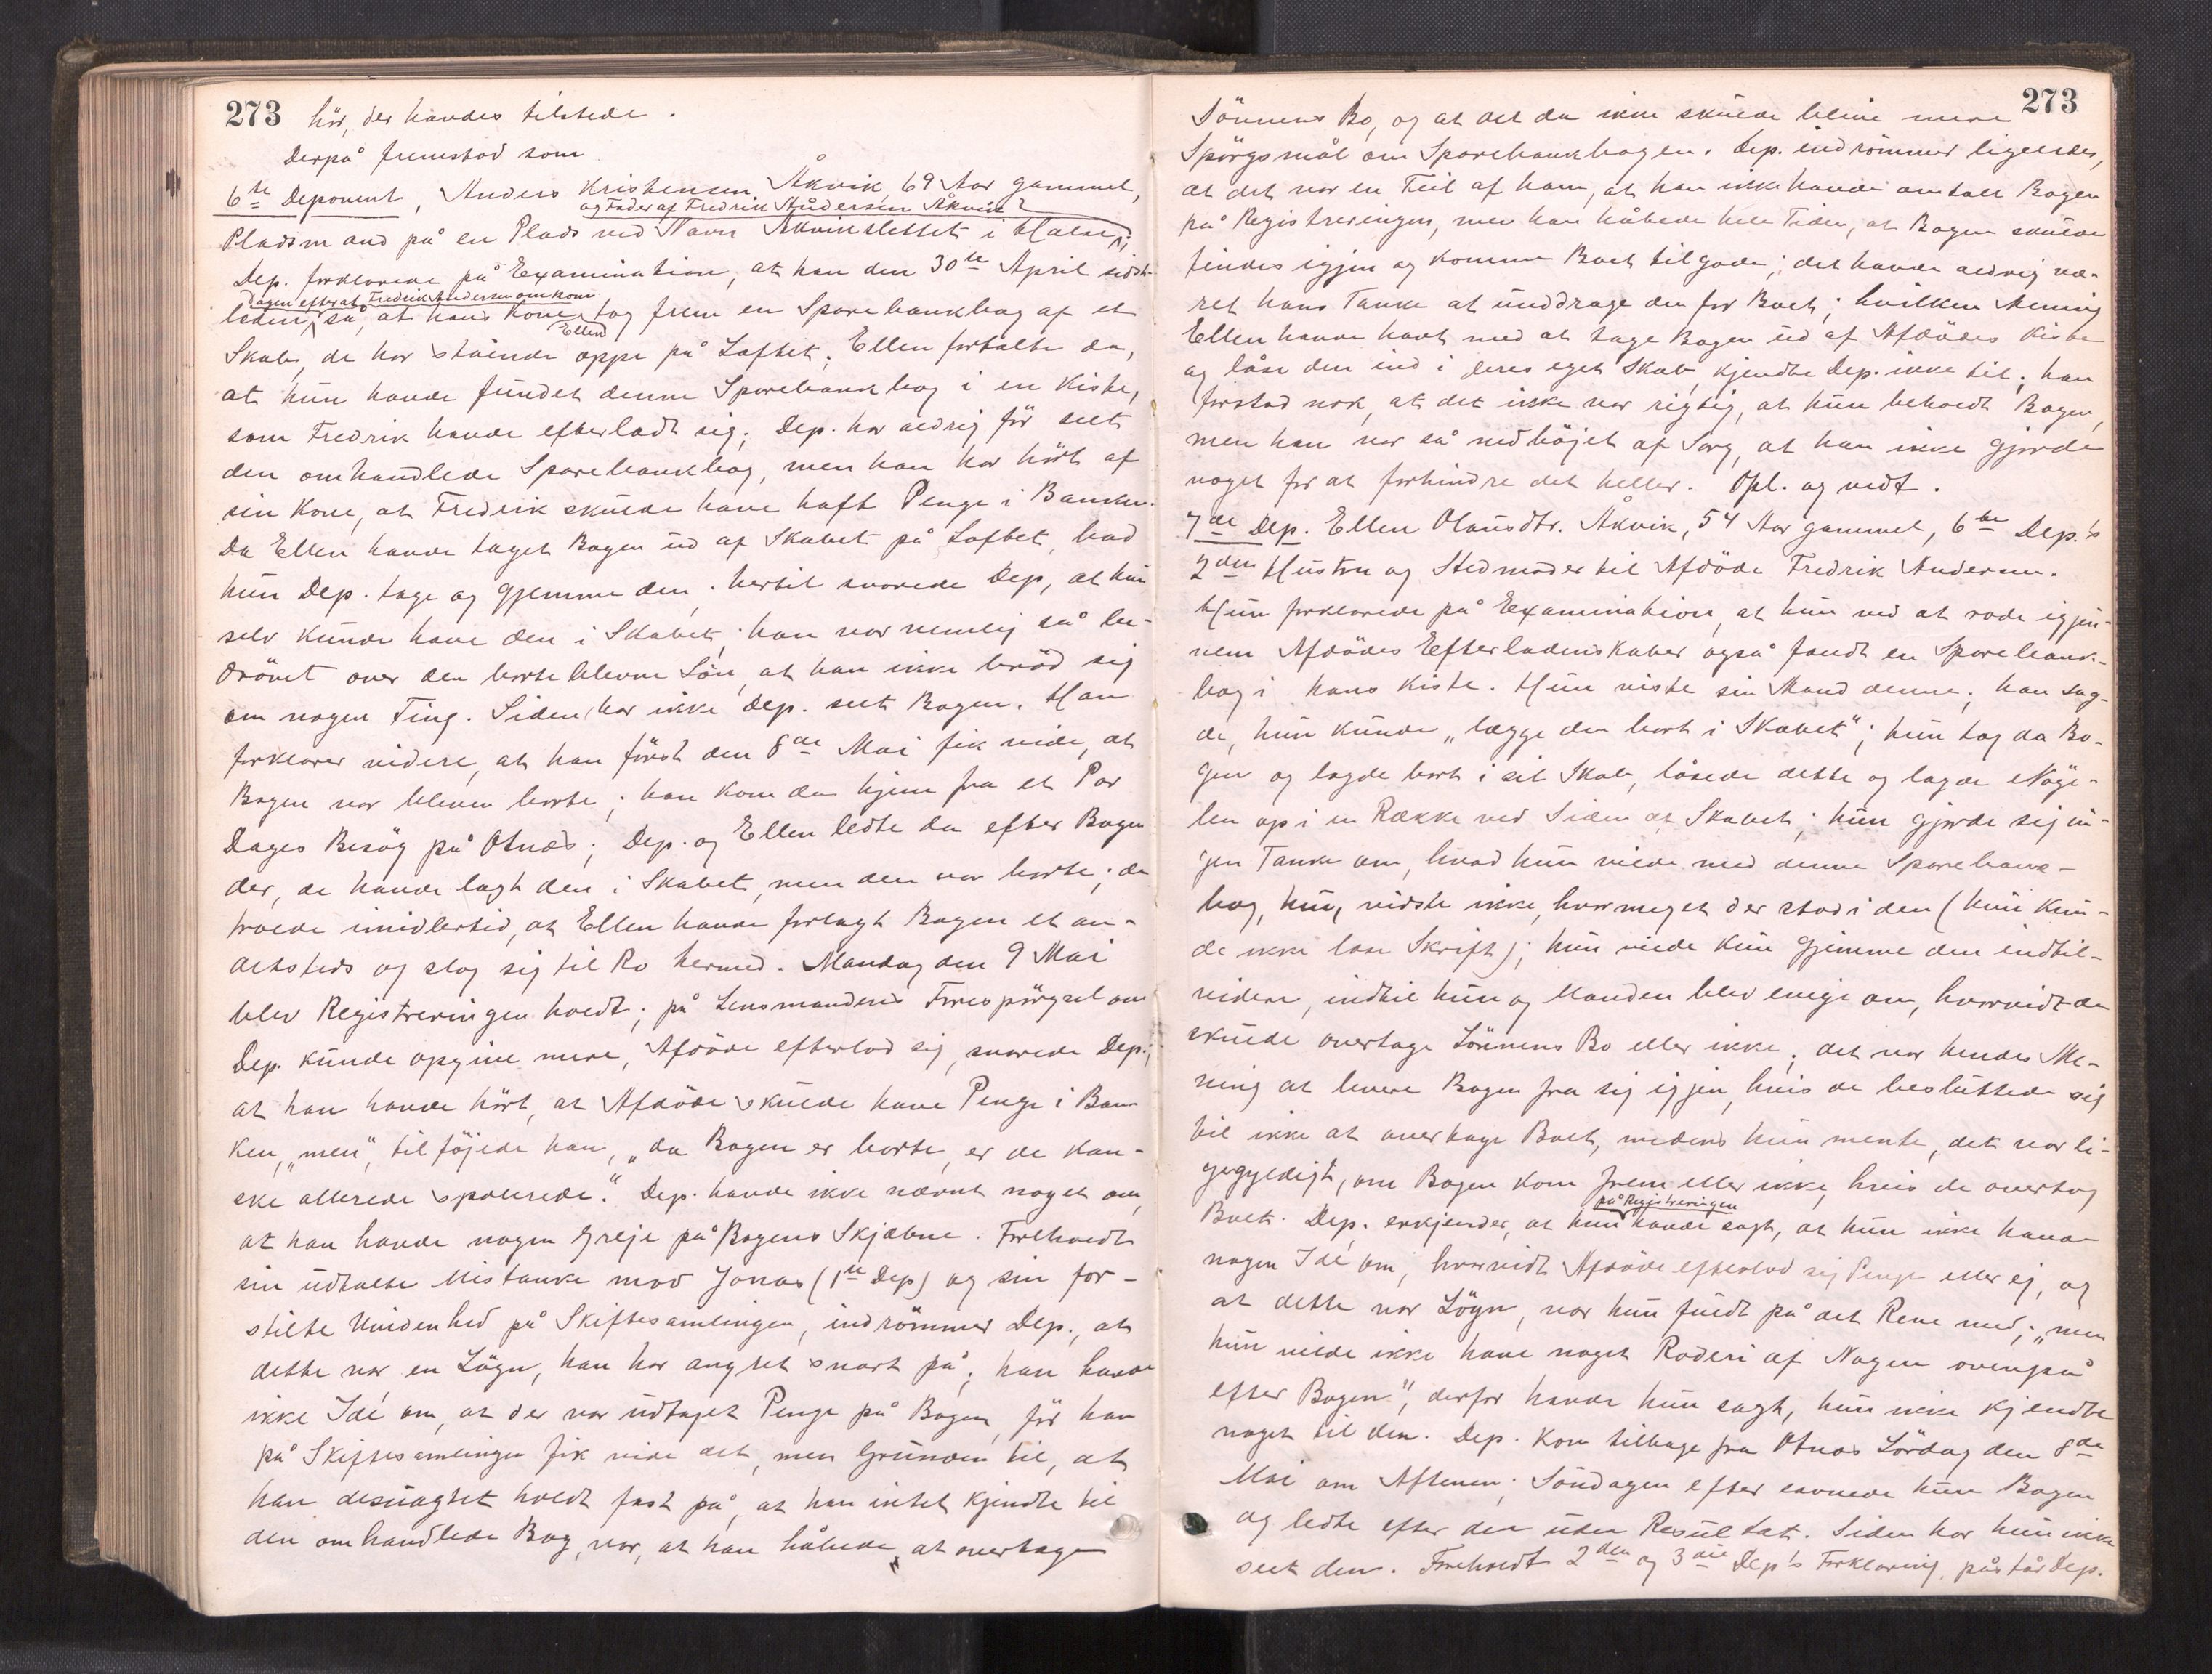 273
hör, der havdes tilstede.
Derpå fremstod som
6te Deponent, Anders Kristensen Åkvik, 69 Aar gammel,
og Fader af Fredrik Andersen Åkvik
Pladsmand på en Plads ved Navn Åkvikslettet i Halse;
Dep. forklarede på Examination, at han den 30te April sidst-
Dagen efter at Fredrik Andersen omkom
liden, så, at hans Kone tog frem en Sparebankbog af et
Ellen
Skab, de har stående oppe på Loftet; Ellen fortalte da,
at hun havde fundet denne Sparebankbog i en Kiste,
som Fredrik havde efterladt sig; Dep. har aldrig för seet
den omhandlede Sparebankbog, men han har hört af
sin Kone, at Fredrik skulde have haft Penge i Banken.
Da Ellen havde taget Bogen ud af Skabet på Loftet, bad
hun Dep. tage og gjemme den; hertil svarede Dep, at hun
selv kunde have den i Skabet; han var nemlig så be-
drövet over den borteblevne Sön, at han ikke bröd sig
om nogen Ting. Siden har ikke Dep. seet Bogen. Han
forklarer videre, at han först den 8de Mai fik vide, at
Bogen var bleven borte; han kom da hjem fra et Par
Dages Besög på Otnæs; Dep. og Ellen ledte da efter Bogen
der, de havde lagt den i Skabet, men den var borte; de
troede imidlertid, at Ellen havde forlagt Bogen et an-
detsteds og slog sig til Ro hermed. Mandag den 9 Mai
blev Registreringen holdt; på Lensmandens Forespörgsel om
Dep. kunde opgive mere, Afdöde efterlod sig, svarede Dep.;
at han havde hört, at Afdöde skulde have Penge i Ban-
ken, "men", tilföjede han, "da Bogen er borte, er de kan-
ske allerede spolerede." Dep. havde ikke nævnt noget om,
at han havde nogen Greje på Bogens Skjæbne. Foreholdt
sin udtalte Mistanke mod Jonas (1ste Dep) og sin for-
stilte Uvidenhed på Skiftesamlingen, indrömmer Dep., at
dette var en Lögn, han har angret snart på; han havde
ikke Idé om, at der var udtaget Penge på Bogen, för han
på Skiftesamlingen fik vide det, men Grunden til, at
han desuagtet holdt fast på, at han intet kjendte til
den omhandlede Bog, var, at han håbede at overtage
273
Sönnens Bo, og at det da ikke skulde blive mere
Spörgsmål om Sparebankbogen. Dep. indrömmer ligeledes,
at det var en Feil af ham, at han ikke havde omtalt Bogen
på Registreringen, men han håbede hele Tiden, at Bogen skulde
findes igjen og komme Boet tilgode; det havde aldrig væ-
ret hans Tanke at unddrage den for Boet; hvilken Mening
Ellen havde havt med at tage Bogen ud af Afdödes Kiste
og låse den ind i deres eget Skab, kjendte Dep. ikke til; han
forstod nok, at det ikke var rigtig, at hun beholdt Bogen,
men han var så nedböjet af Sorg, at han ikke gjorde
noget for at forhindre det heller. Opl. og vedt.
7de Dep. Ellen Olausdtr. Åkvik, 54 Aar gammel, 6te Dep.'s
2den Hustru og Stedmoder til Afdöde Fredrik Andersen.
Hun forklarede på Examination, at hun ved at rode igjen-
nem Afdödes Efterladenskaber også fandt en Sparebank-
bog i hans Kiste. Hun viste sin Mand denne; han sag-
de, hun kunde "lægge den bort i Skabet"; hun tog da Bo-
gen og lagde bort i sit Skab, låsede dette og lagde Nöge-
len op i en Række ved Siden af Skabet; hun gjorde sig in-
gen Tanke om, hvad hun vilde med denne Sparebank-
bog, hun, vidste ikke, hvormeget der stod i den (hun kun-
de ikke læse Skrift); hun vilde kun gjemme den indtil-
videre, indtil hun og Manden blev enige om, hvorvidt de
skulde overtage Sönnens Bo eller ikke; det var hendes Me-
ning at levere Bogen fra sig igjen, hvis de besluttede sig
til ikke at overtage Boet, medens hun mente, det var li-
gegyldigt, om Bogen kom frem eller ikke, hvis de overtog
på Registreringen
Boet. Dep. erkjender, at hun havde sagt, at hun ikke havde
nogen Idé om, hvorvidt Afdöde efterlod sig Penge eller ej, og
at dette var Lögn, var hun fuldt på det Rene med; "men
hun vilde ikke have noget Roderi af Nogen ovenpå
efter Bogen", derfor havde hun sagt, hun ikke kjendte
noget til den. Dep. kom tilbage fra Otnæs Lördag den 8de
Mai om Aftenen; Söndagen efter savnede hun Bogen
og ledte efter den uden Resultat. Siden har hun ikke
seet den. Foreholdt 2den og 3die Dep's Forklaring, påstår Dep.